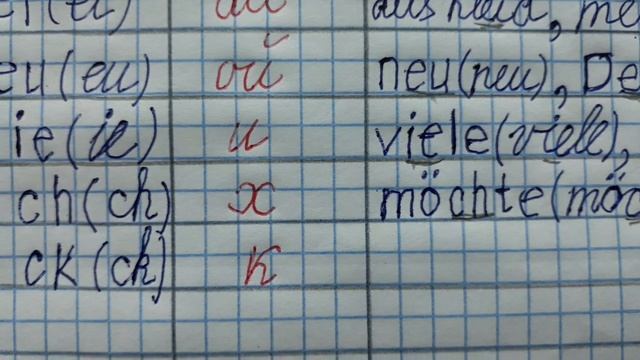 ай
eu(eu) ой neu(neu), De
ie(ie) и viele(viele),
ch(ch) х möchte(möc
ck(ck) к